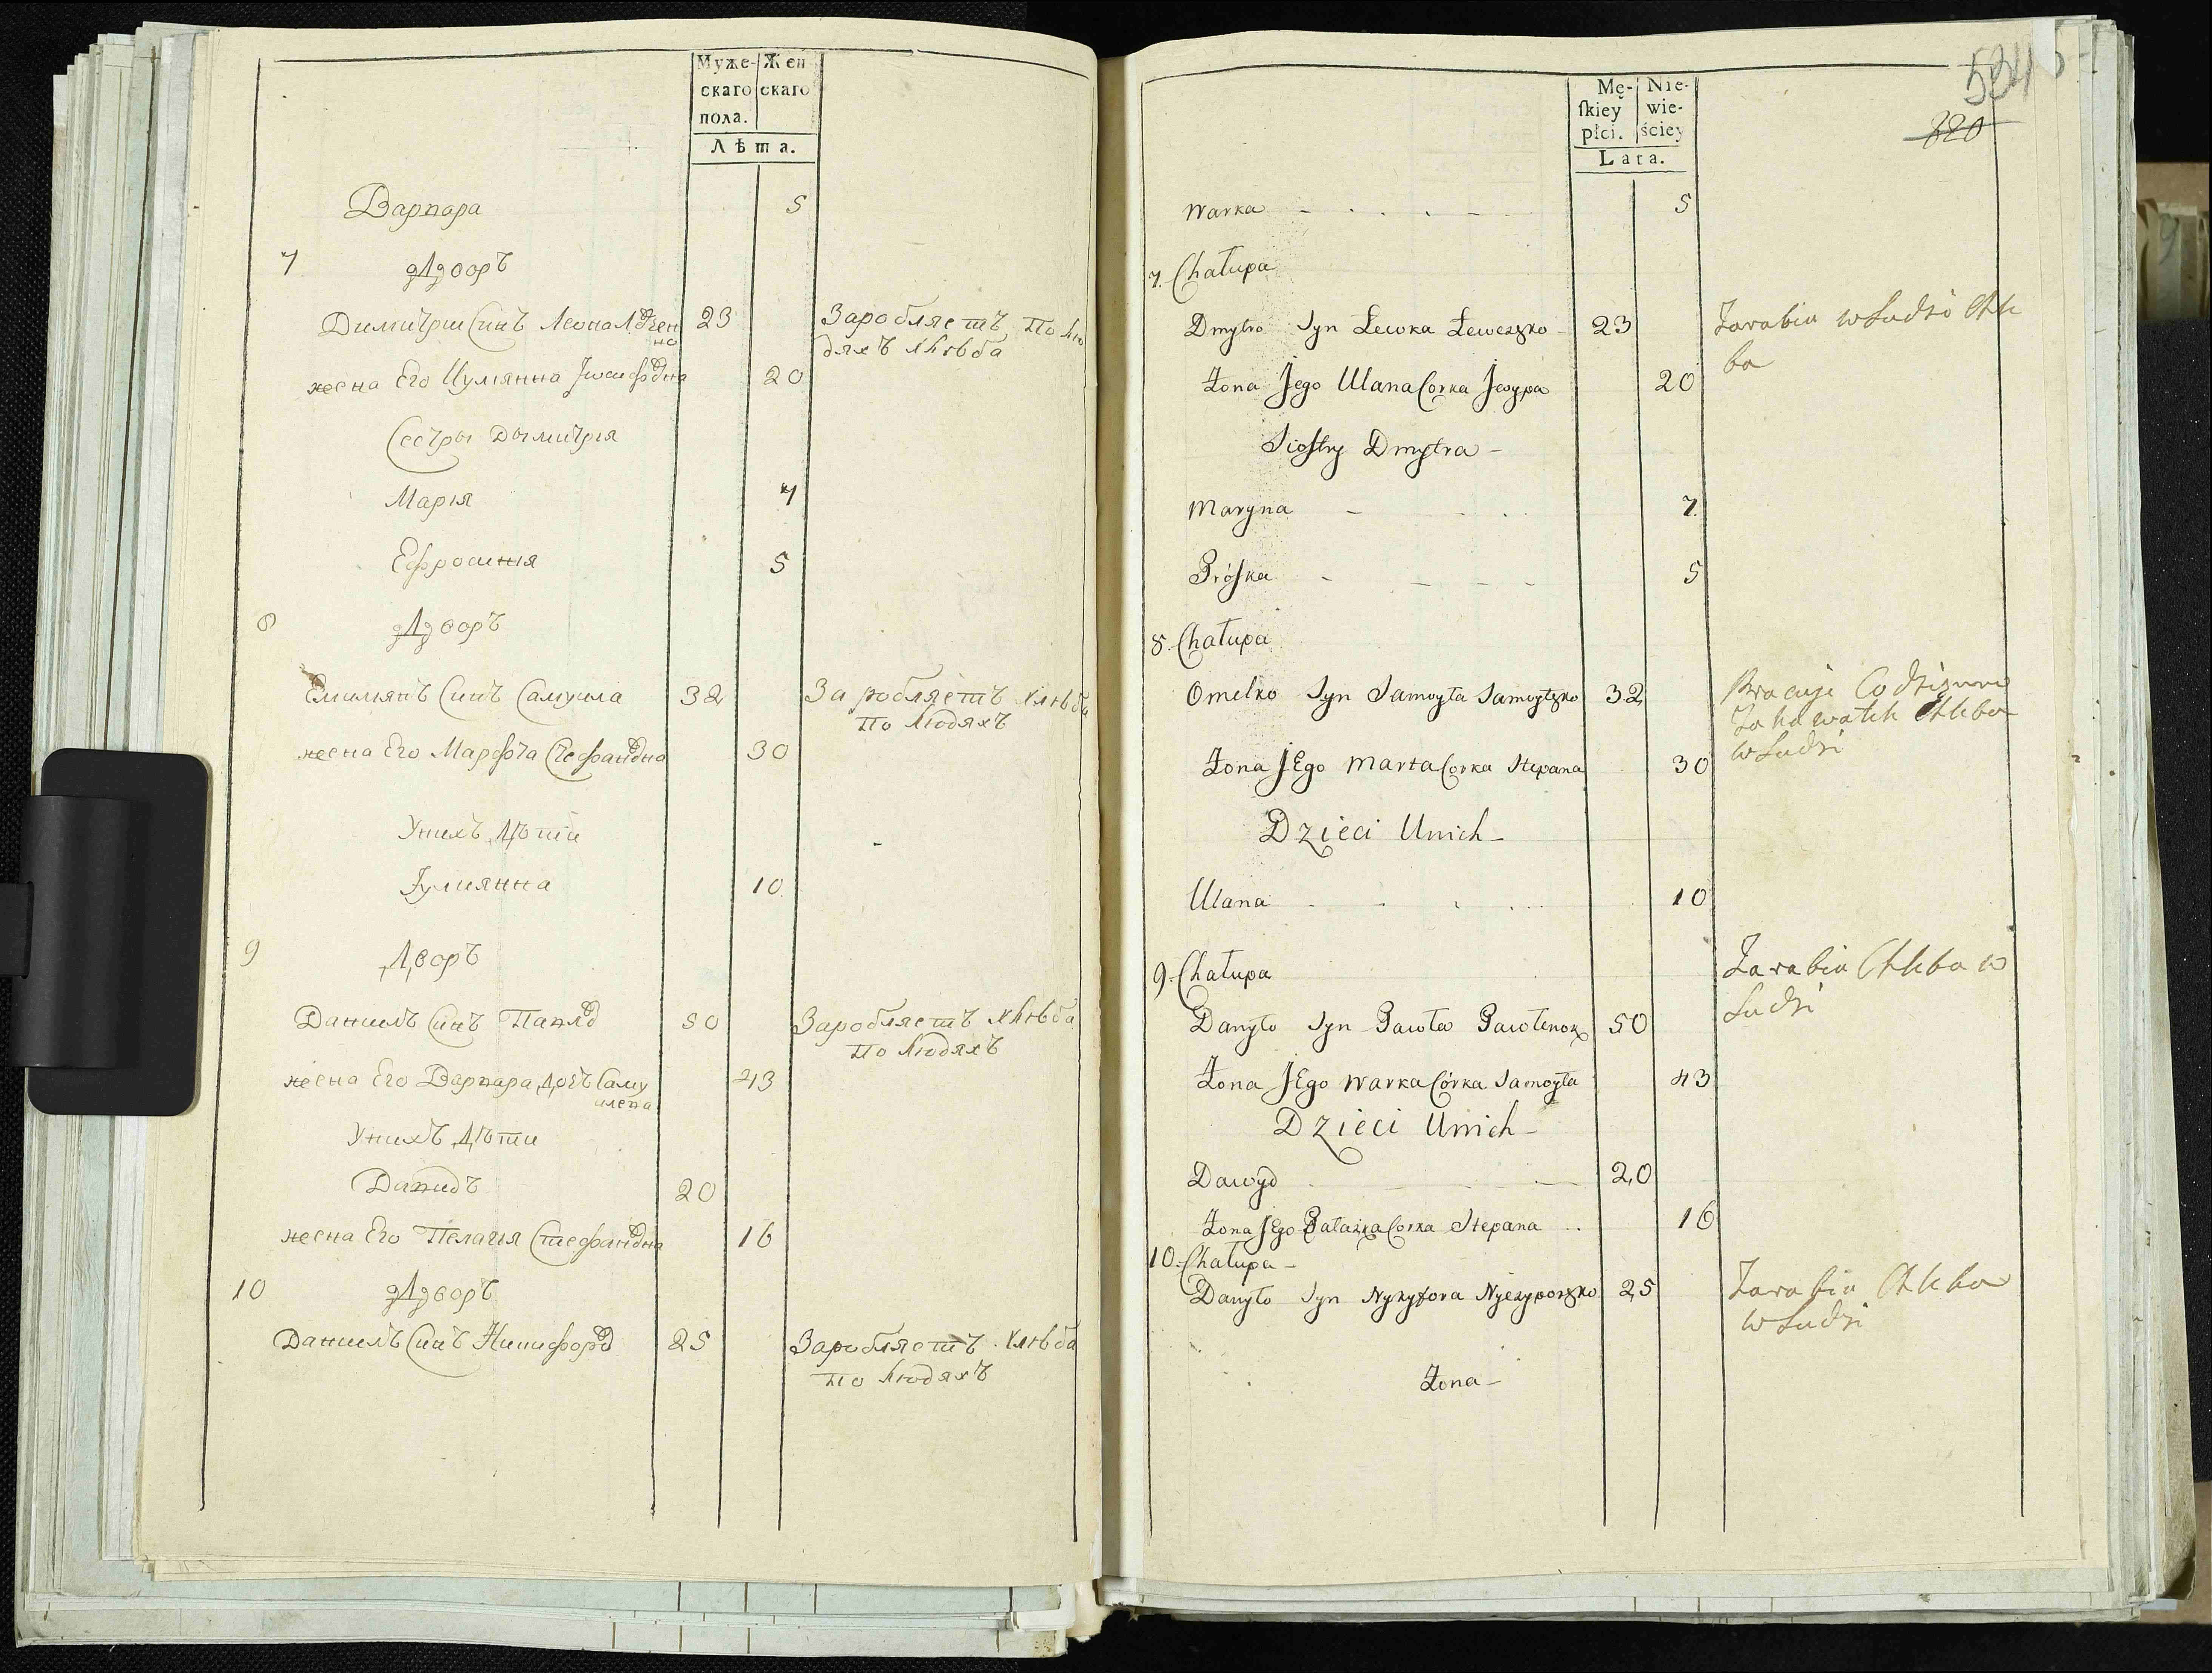 Муже-
скаго
пола.
Жен
скаго
Лѣта.
Варвара 5
7 Дворъ
Димитрїи Синъ 23 Заробляетъ по лю
дяхъ хлѣба
жена Его Иулїянна 20
Сестры Дымитрїя
Марїя 7
Ефросинїя 5
8 Дворъ
Емилїянъ Синъ Самуила 32 Заробляетъ хлѣба
по людяхъ
жена Его Марфта Стефановна 30
Унихъ Дѣти
Їулиянна 10
9 Дворъ
Данилъ Синъ Павлов 50 Заробляетъ хлѣба
по людяхъ
жена Его Варвара Дочъ Саму
илева 43
Унихъ Дѣти
Давидъ 20
жена Его Пелагїя Стефановна 16
10 Дворъ
Данилъ Синъ Никифоров 25 Заробляетъ хлѣба
по людяхъ
Mę-
skiey
płci.
Nie-
wie-
ściey
Lata.
534
220
Warka 5
7. Chałupa
Dmytro Syn Lewka Leweczko 23 Zarabia w Ludzi Chle
ba
Żona Jego Ulana Corka Jeozypa 20
Siostry Dmytra
Maryna 7
Próska 5
8. Chałupa
Omelko Syn Samoyła Samoyłzko 32 Pracuje Codziennie
Chleba
w Ludzi
Żona JEgo Marta Corka Stepana 30
Dzieci Unich
Ulana 10
9. Chałupa
Zarabia Chleba w
Ludzi
Danyło Syn Pawła Pawlenko 50
Żona JEgo Warka Córka Samoyła 43
Dzieci Unich
Dawyd 20
Żona JEgo Pałazka Corka Stepana 16
10. Chałupa
Danyło Syn Nykyfora 25 Zarabia Chleba
w Ludzi
Żona